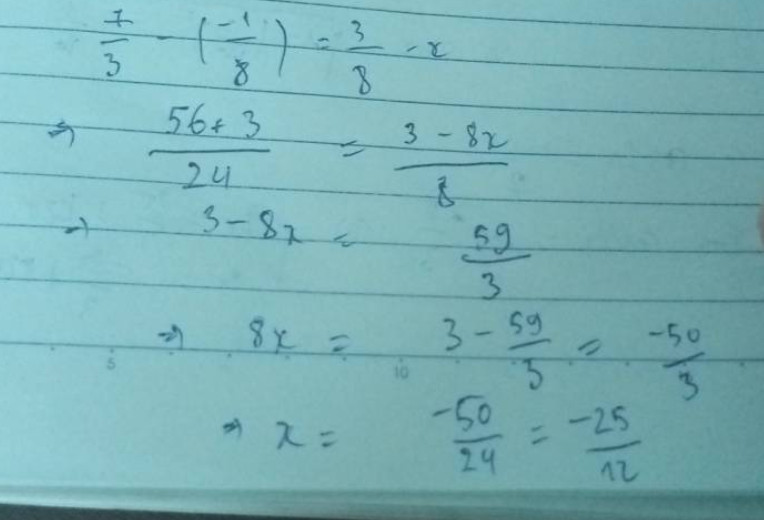 7/3 - (-1/8) = 3/8 - x
⇒ 56+3/24 = 3-8x/8
⇒ 3-8x = 59/3
⇒ 8x = 3 - 59/3 = -50/3
5 10
⇒ x = -50/24 = -25/12